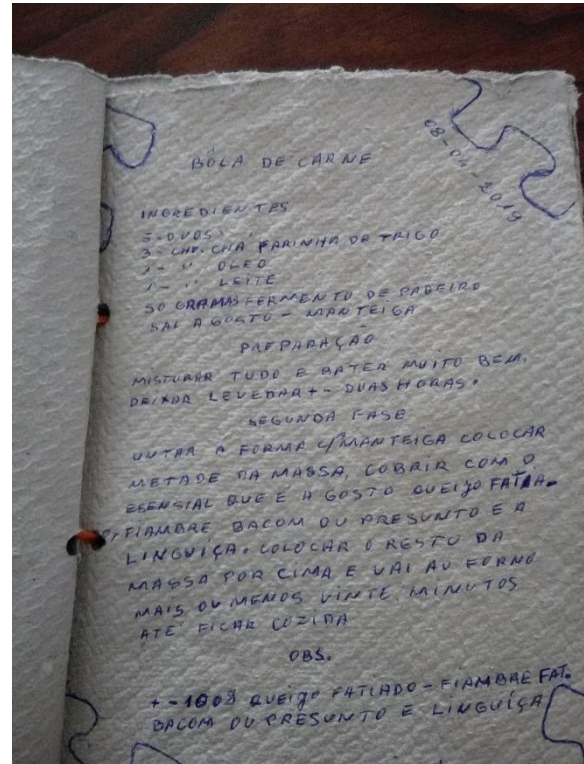 08-04-2019
BÔLA DE CARNE
INGREDIENTES
5-OVOS
3-CHV. CHÁ FARINHA DE TRIGO
1- " OLEO
1- " LEITE
50 GRAMAS FERMENTO DE PADEIRO
SAL A GOSTO - MANTEIGA
PREPARAÇÃO
MISTURAR TUDO E BATER MUITO BEM,
DEIXAR LEVEDAR +- DUAS HORAS.
SEGUNDA FASE
UNTAR A FORMA C/MANTEIGA COLOCAR
METADE DA MASSA, COBRIR COM O
ESENSIAL QUE E A GOSTO QUEIJO FATIA-
DO, FIAMBRE BACOM OU PRESUNTO E A
LINGUIÇA. COLOCAR O RESTO DA
MASSA POR CIMA E VAI AU FORNO
MAIS OU MENOS VINTE MINUTOS
ATÉ FICAR COZIDA
OBS.
+-100g QUEIJO FATIADO - FIAMBRE FAT.
BACOM OU PRESUNTO E LINGUIÇA